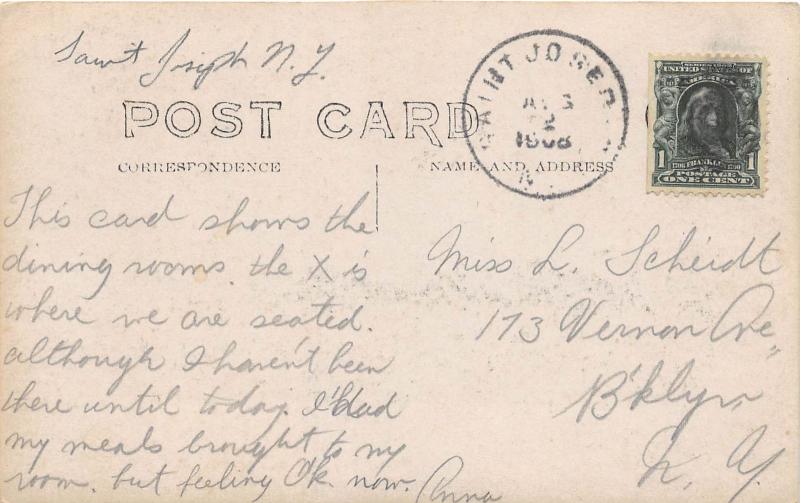 Saint Joseph N. Y.
POST CARD
SAINT JOSEPH
AUG
2
1908
N
SERIES 1902
UNITED STATES OF
AMERICA
1706 FRANKLIN 1790
1 1
POSTAGE
ONE CENT
CORRESPONDENCE
NAME AND ADDRESS
This card shows the
dining rooms. the X is
where we are seated.
although I haven't been
there until today. I had
my meals brought to my
room. but feeling O.k. now. Anna
Miss L. Scheidt
173 Vernon Ave,
B'klyn
N. Y.